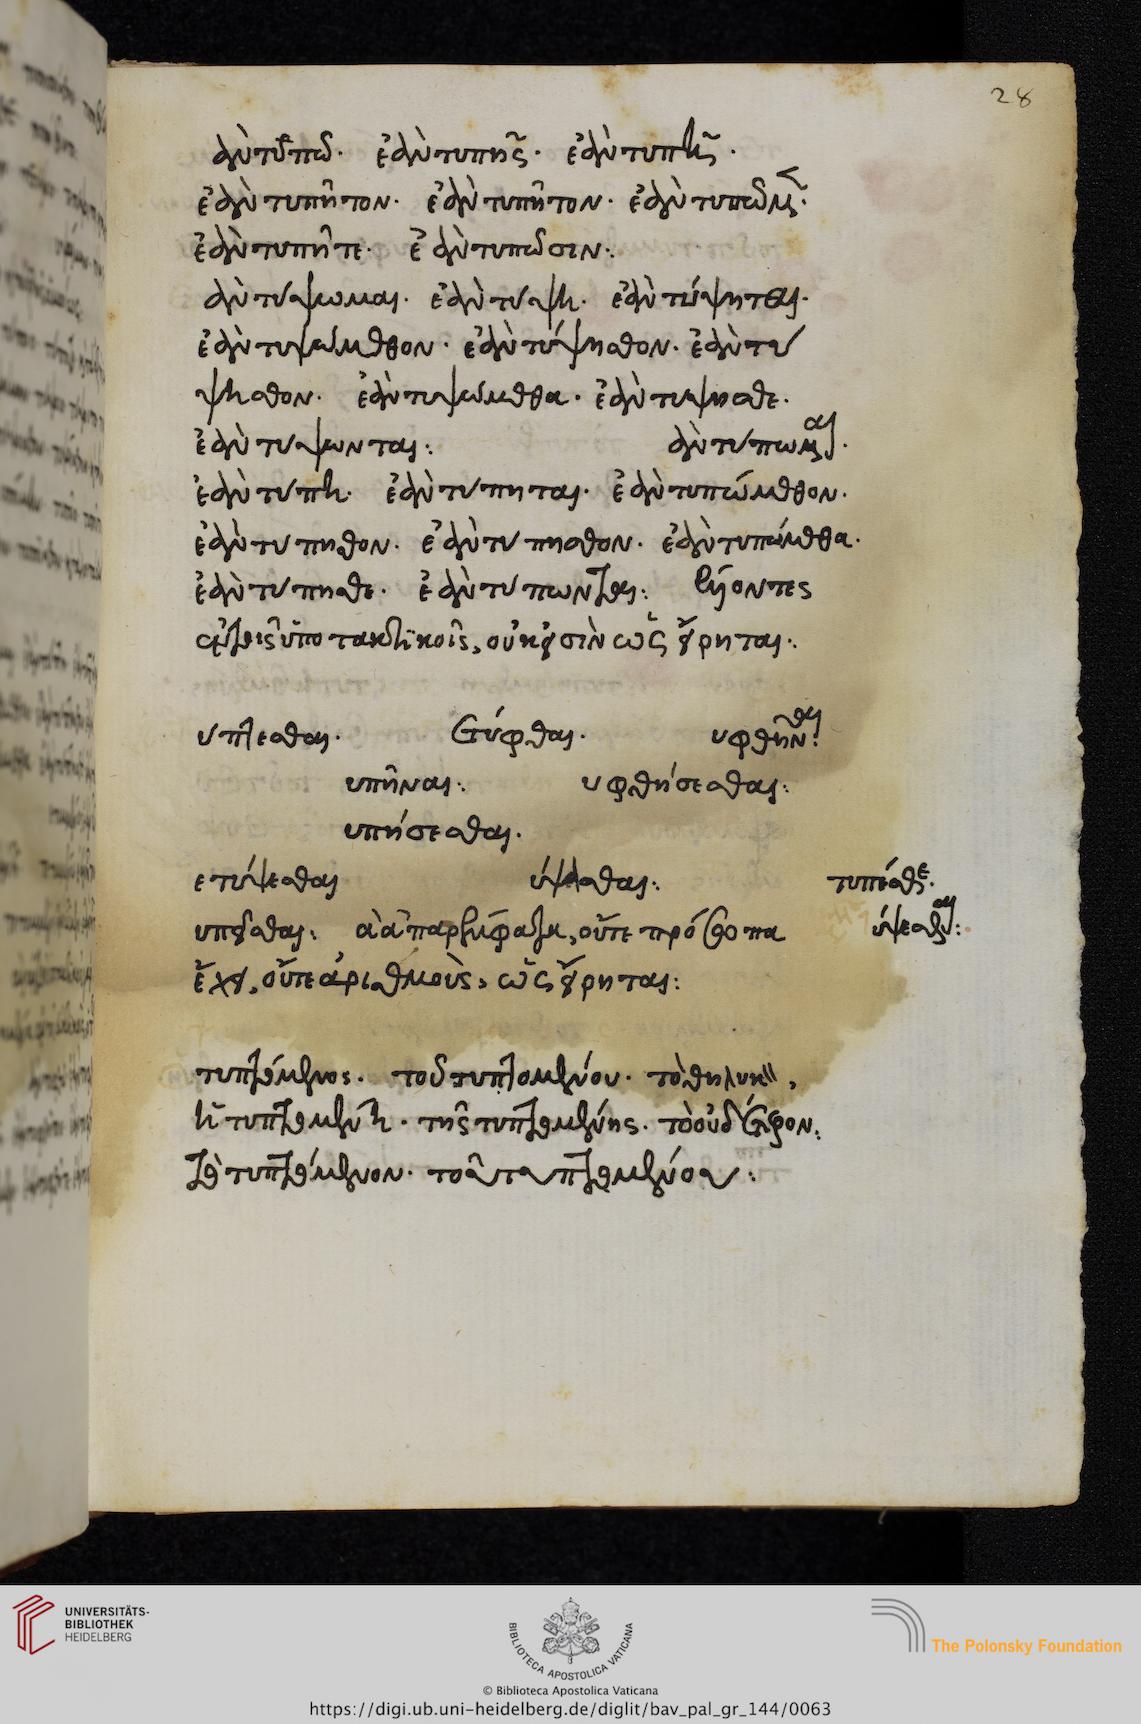 28
ἐὰν τυπῶ. ἐὰν τυπῆς. ἐὰν τυπῆ.
ἐὰν τυπῆτον. ἐὰν τυπῆτον. ἐὰν τυπῶμεν.
ἐὰν τυπῆτε. ἐὰν τυπῶσιν:
ἐὰν τυψωμαι. ἐὰν τυψη. ἐὰν τύψηται.
ἐὰν τυψώμεθον. ἐὰν τύψησθον. ἐὰν τυ
ψησθον. ἐὰν τυψώμεθα. ἐὰν τυψησθε.
ἐὰν τυψωνται: ἐὰν τυπωμαι.
ἐὰν τυπη. ἐὰν τυπηται. ἐὰν τυπώμεθον.
ἐὰν τυπησθον. ἐὰν τυπησθον. ἐὰν τυπώμεθα.
ἐὰν τυπησθε. ἐὰν τυπωνται: λήγοντες
ὑποτακτικοῖς, οὐκ εἰσὶν ὡς εἴρηται:
υπτεσθαι. τύφθαι. υφθῆναι:
υπῆναι: υφθήσεσθαι:
υπήσεσθαι.
ετύψεσθαι ύψασθαι: τυπέσθαι.
υπεῖσθαι: τὰ ἀπαρέμφατα, οὔτε πρόσωπα ύψεσθαι:
ἔχει, οὔτε ἀριθμοὺς, ὡς εἴρηται:
τυπτόμενος. τοῦ τυπτομένου. τὸ θηλυκ,
ἡ τυπτομένη. τῆς τυπτομένης. τὸ οὐδέτερον:
τὸ τυπτόμενον.
UNIVERSITÄTS-
BIBLIOTHEK
HEIDELBERG
BIBLIOTECA APOSTOLICA VATICANA
The Polonsky Foundation
© Biblioteca Apostolica Vaticana
https://digi.ub.uni-heidelberg.de/diglit/bav_pal_gr_144/0063